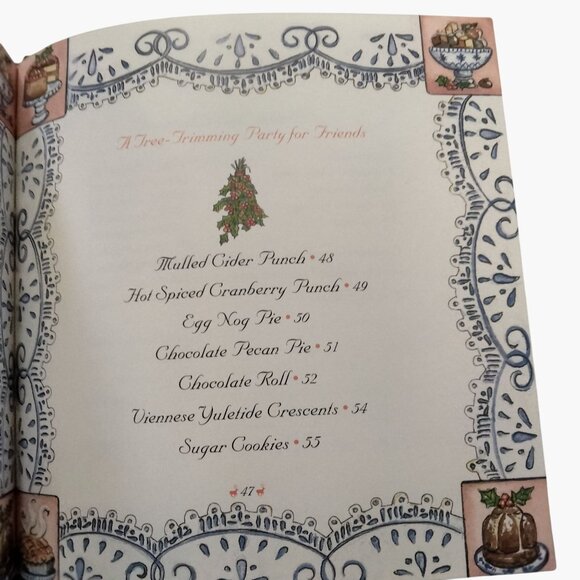 A Tree-Trimming Party for Friends
Mulled Cider Punch • 48
Hot Spiced Cranberry Punch • 49
Egg Nog Pie • 50
Chocolate Pecan Pie • 51
Chocolate Roll • 52
Viennese Yuletide Crescents • 54
Sugar Cookies • 55
47